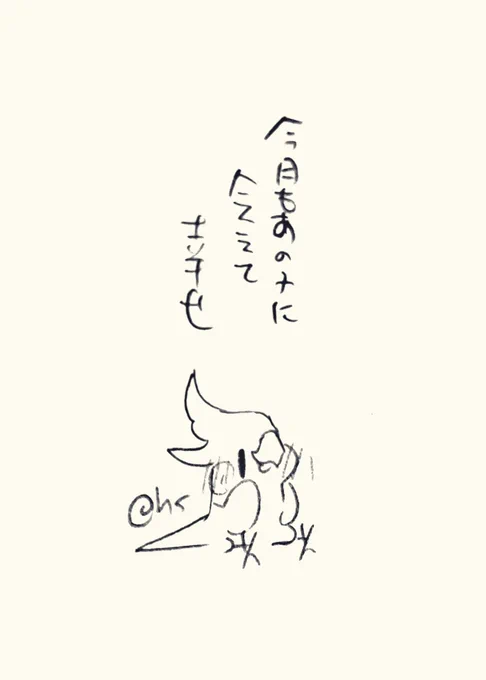 今日もあのに
会えて
幸せ
@hs